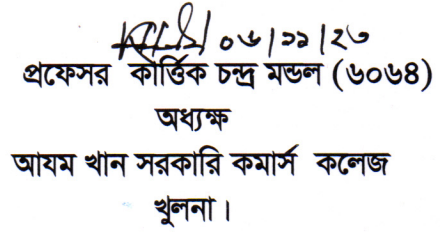 ০৬/১১/২৩
প্রফেসর কার্ত্তিক চন্দ্র মন্ডল (৬০৬৪)
অধ্যক্ষ
আযম খান সরকারি কমার্স কলেজ
খুলনা।